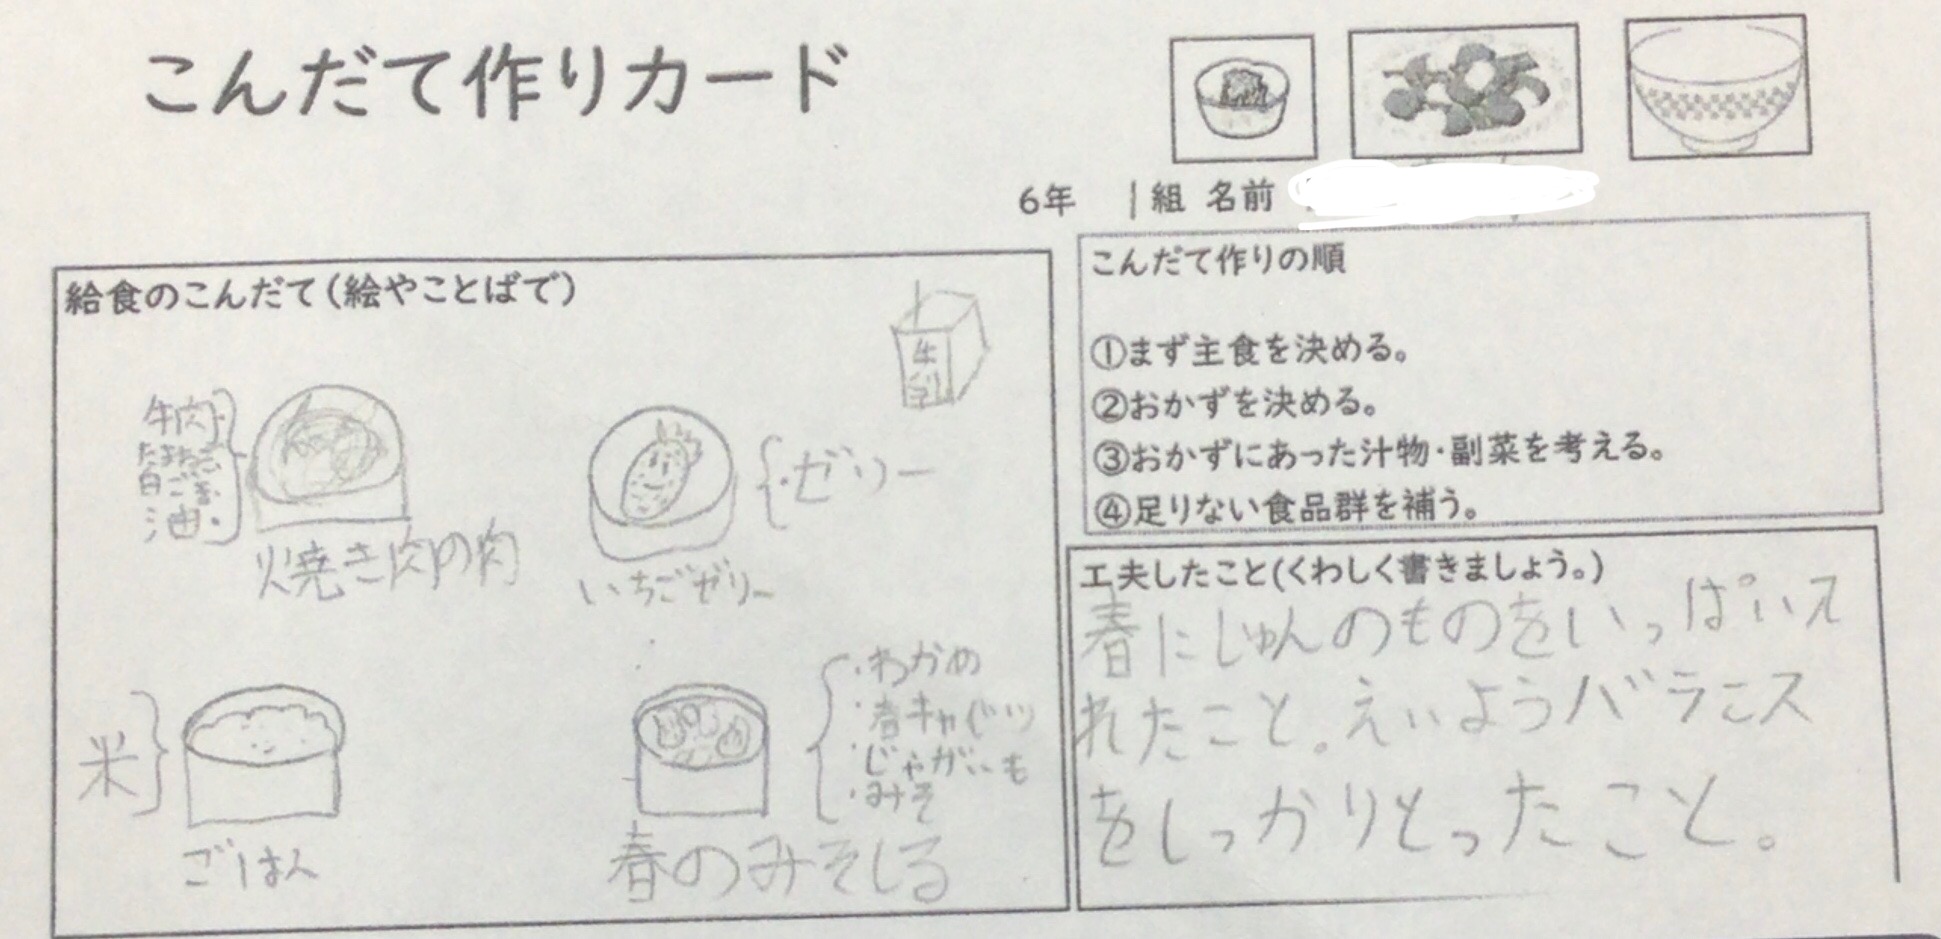 こんだて作りカード
6年 1組 名前
給食のこんだて(絵やことばで)
牛乳
牛肉
たまねぎ
白ごま
油
焼き肉の肉
・ゼリー
いちごゼリー
米
ごはん
・わかめ
・春キャベツ
・じゃがいも
・みそ
春のみそしる
こんだて作りの順
①まず主食を決める。
②おかずを決める。
③おかずにあった汁物・副菜を考える。
④足りない食品群を補う。
工夫したこと(くわしく書きましょう。)
春にしゅんのものをいっぱい入
れたこと。えいようバランス
をしっかりとったこと。